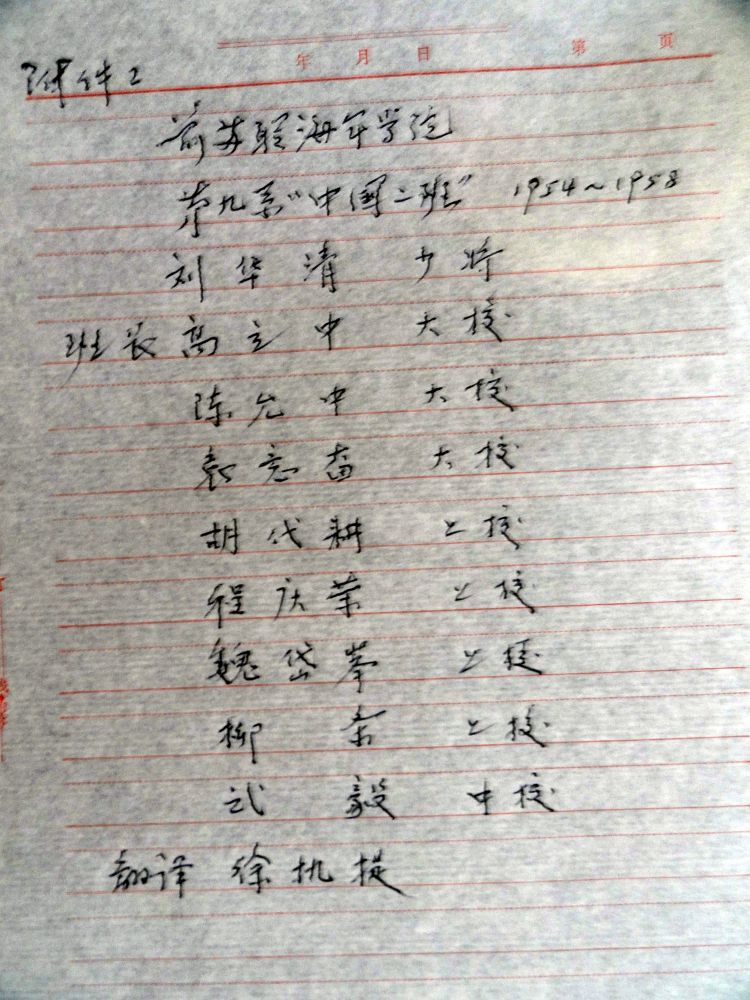 年 月 日 第 页
附件2
前苏联海军学院
第九系"中国二班" 1954~1958
刘华清 少将
班长 高立中 大校
陈允中 大校
袁意奋 大校
胡代耕 上校
程庆荣 上校
魏岱峯 上校
柳 上校
武毅 中校
翻译 徐